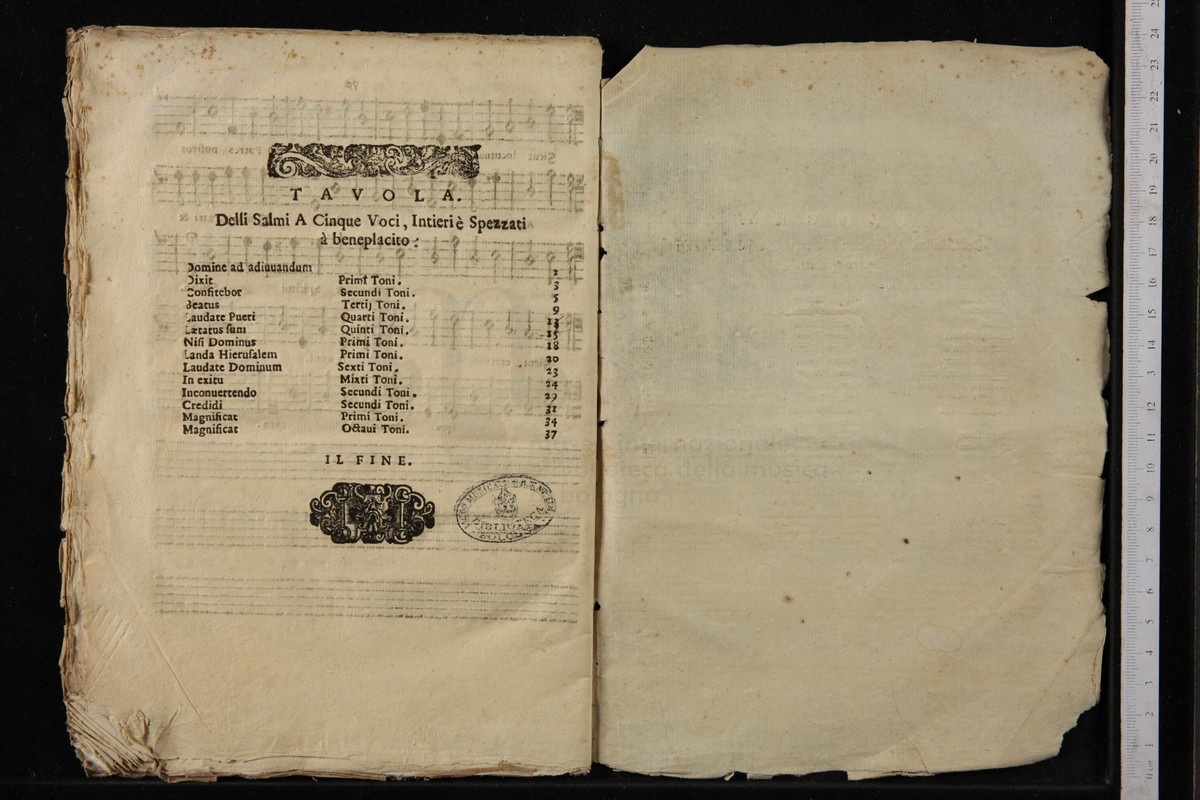 TAVOLA.
Delli Salmi A Cinque Voci, Intieri è Spezzati
à beneplacito:
Domine ad adiuuandum 2
Dixit Primi Toni. 3
Confitebor Secundi Toni. 5
Beatus Tertij Toni. 9
Laudate Pueri Quarti Toni. 13
Lætatus sum Quinti Toni. 15
Nisi Dominus Primi Toni. 18
Landa Hierusalem Primi Toni. 20
Laudate Dominum Sexti Toni. 23
In exitu Mixti Toni. 24
Inconuertendo Secundi Toni. 29
Credidi Secundi Toni. 31
Magnificat Primi Toni. 34
Magnificat Octaui Toni. 37
IL FINE.
BIBLIOTECA
BOLOGNA
museo internazionale
biblioteca della musica
bologna